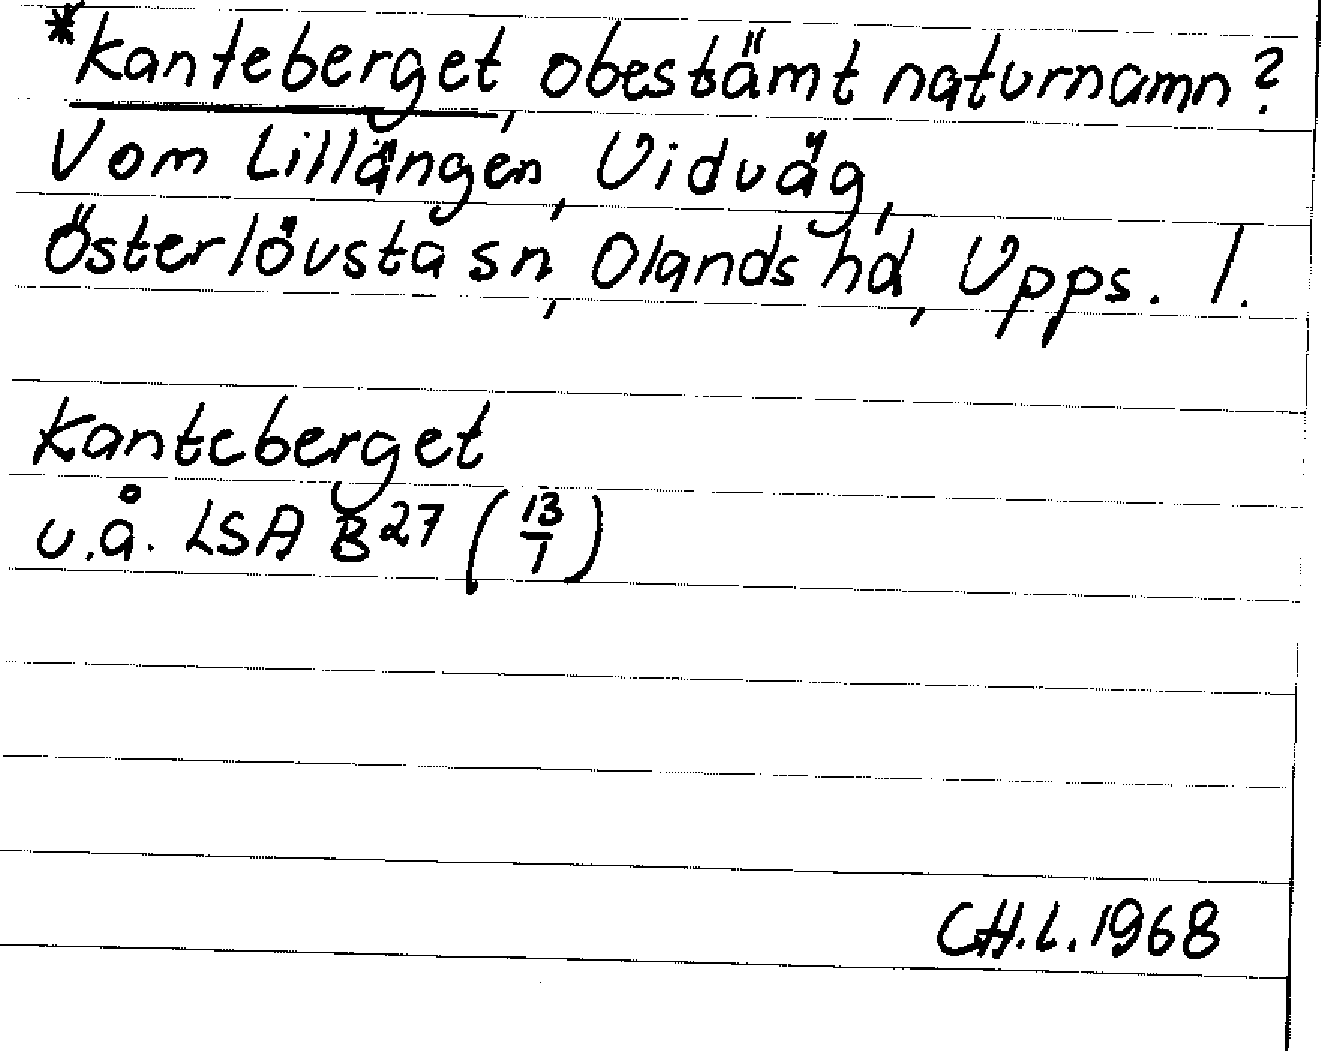 *Kanteberget, obestämt naturnamn?
V om Lillängen, Vidväg,
Österlövsta sn, Olands hd, Upps. l.
Kanteberget
u.å. LSA B 27 (13/1)
CH.L. 1968